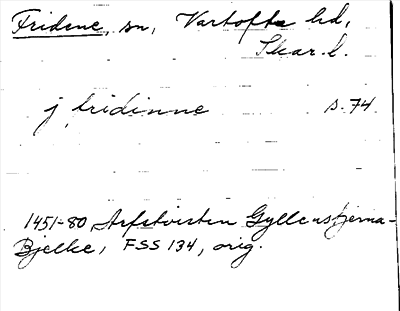 Fridene, sn, Vartofta hd,
Skar. l.
j fridinne s. 74
1451-80 Arfstvisten Gyllenstjerna-
Bjelke, FSS 134, orig.